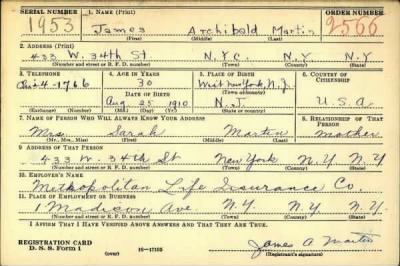 SERIAL NUMBER 1. NAME (Print) ORDER NUMBER
1953 James Archibald Martin 2566
(First) (Middle) (Last)
2. ADDRESS (Print)
433 W. 34th St N.Y.C. N.Y. N.Y
(Number and street or R. F. D. number) (Town) (County) (State)
3. TELEPHONE 4. AGE IN YEARS 5. PLACE OF BIRTH 6. COUNTRY OF CITIZENSHIP
30 West New York, N.J.
4-1766 DATE OF BIRTH (Town or county)
Aug 25 1910 N.J. U.S.A.
(Exchange) (Number) (Mo.) (Day) (Yr.) (State or country)
7. NAME OF PERSON WHO WILL ALWAYS KNOW YOUR ADDRESS 8. RELATIONSHIP OF THAT PERSON
Mrs. Sarah Martin Mother
(Mr., Mrs., Miss) (First) (Middle) (Last)
9. ADDRESS OF THAT PERSON
433 W. 34th St New York N.Y. N.Y
(Number and street or R. F. D. number) (Town) (County) (State)
10. EMPLOYER'S NAME
Metropolitan Life Insurance Co.
11. PLACE OF EMPLOYMENT OR BUSINESS
1 Madison Ave N.Y. N.Y. N.Y.
(Number and street or R. F. D. number) (Town) (County) (State)
I AFFIRM THAT I HAVE VERIFIED ABOVE ANSWERS AND THAT THEY ARE TRUE.
REGISTRATION CARD
D. S. S. Form 1 (over) 16-17105 James A Martin
(Registrant's signature)